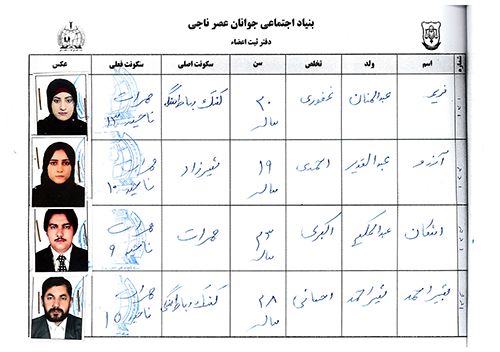 بنیاد اجتماعی جوانان عصر ناجی
دفتر ثبت اعضاء
شماره اسم ولد تخلص سن سکونت اصلی سکونت فعلی عکس
مریم عبدالمنان غفوری ۲۰ ساله هرات ناحیه ۱۳
آرزو عبدالقدیر احمدی ۱۹ ساله شیرزاد هرات ناحیه ۱۰
اشکان عبدالحکیم اکبری ۲۳ ساله هرات هرات ناحیه ۹
بشیراحمد نثیراحمد احسانی ۲۸ ساله هرات ناحیه ۱۵